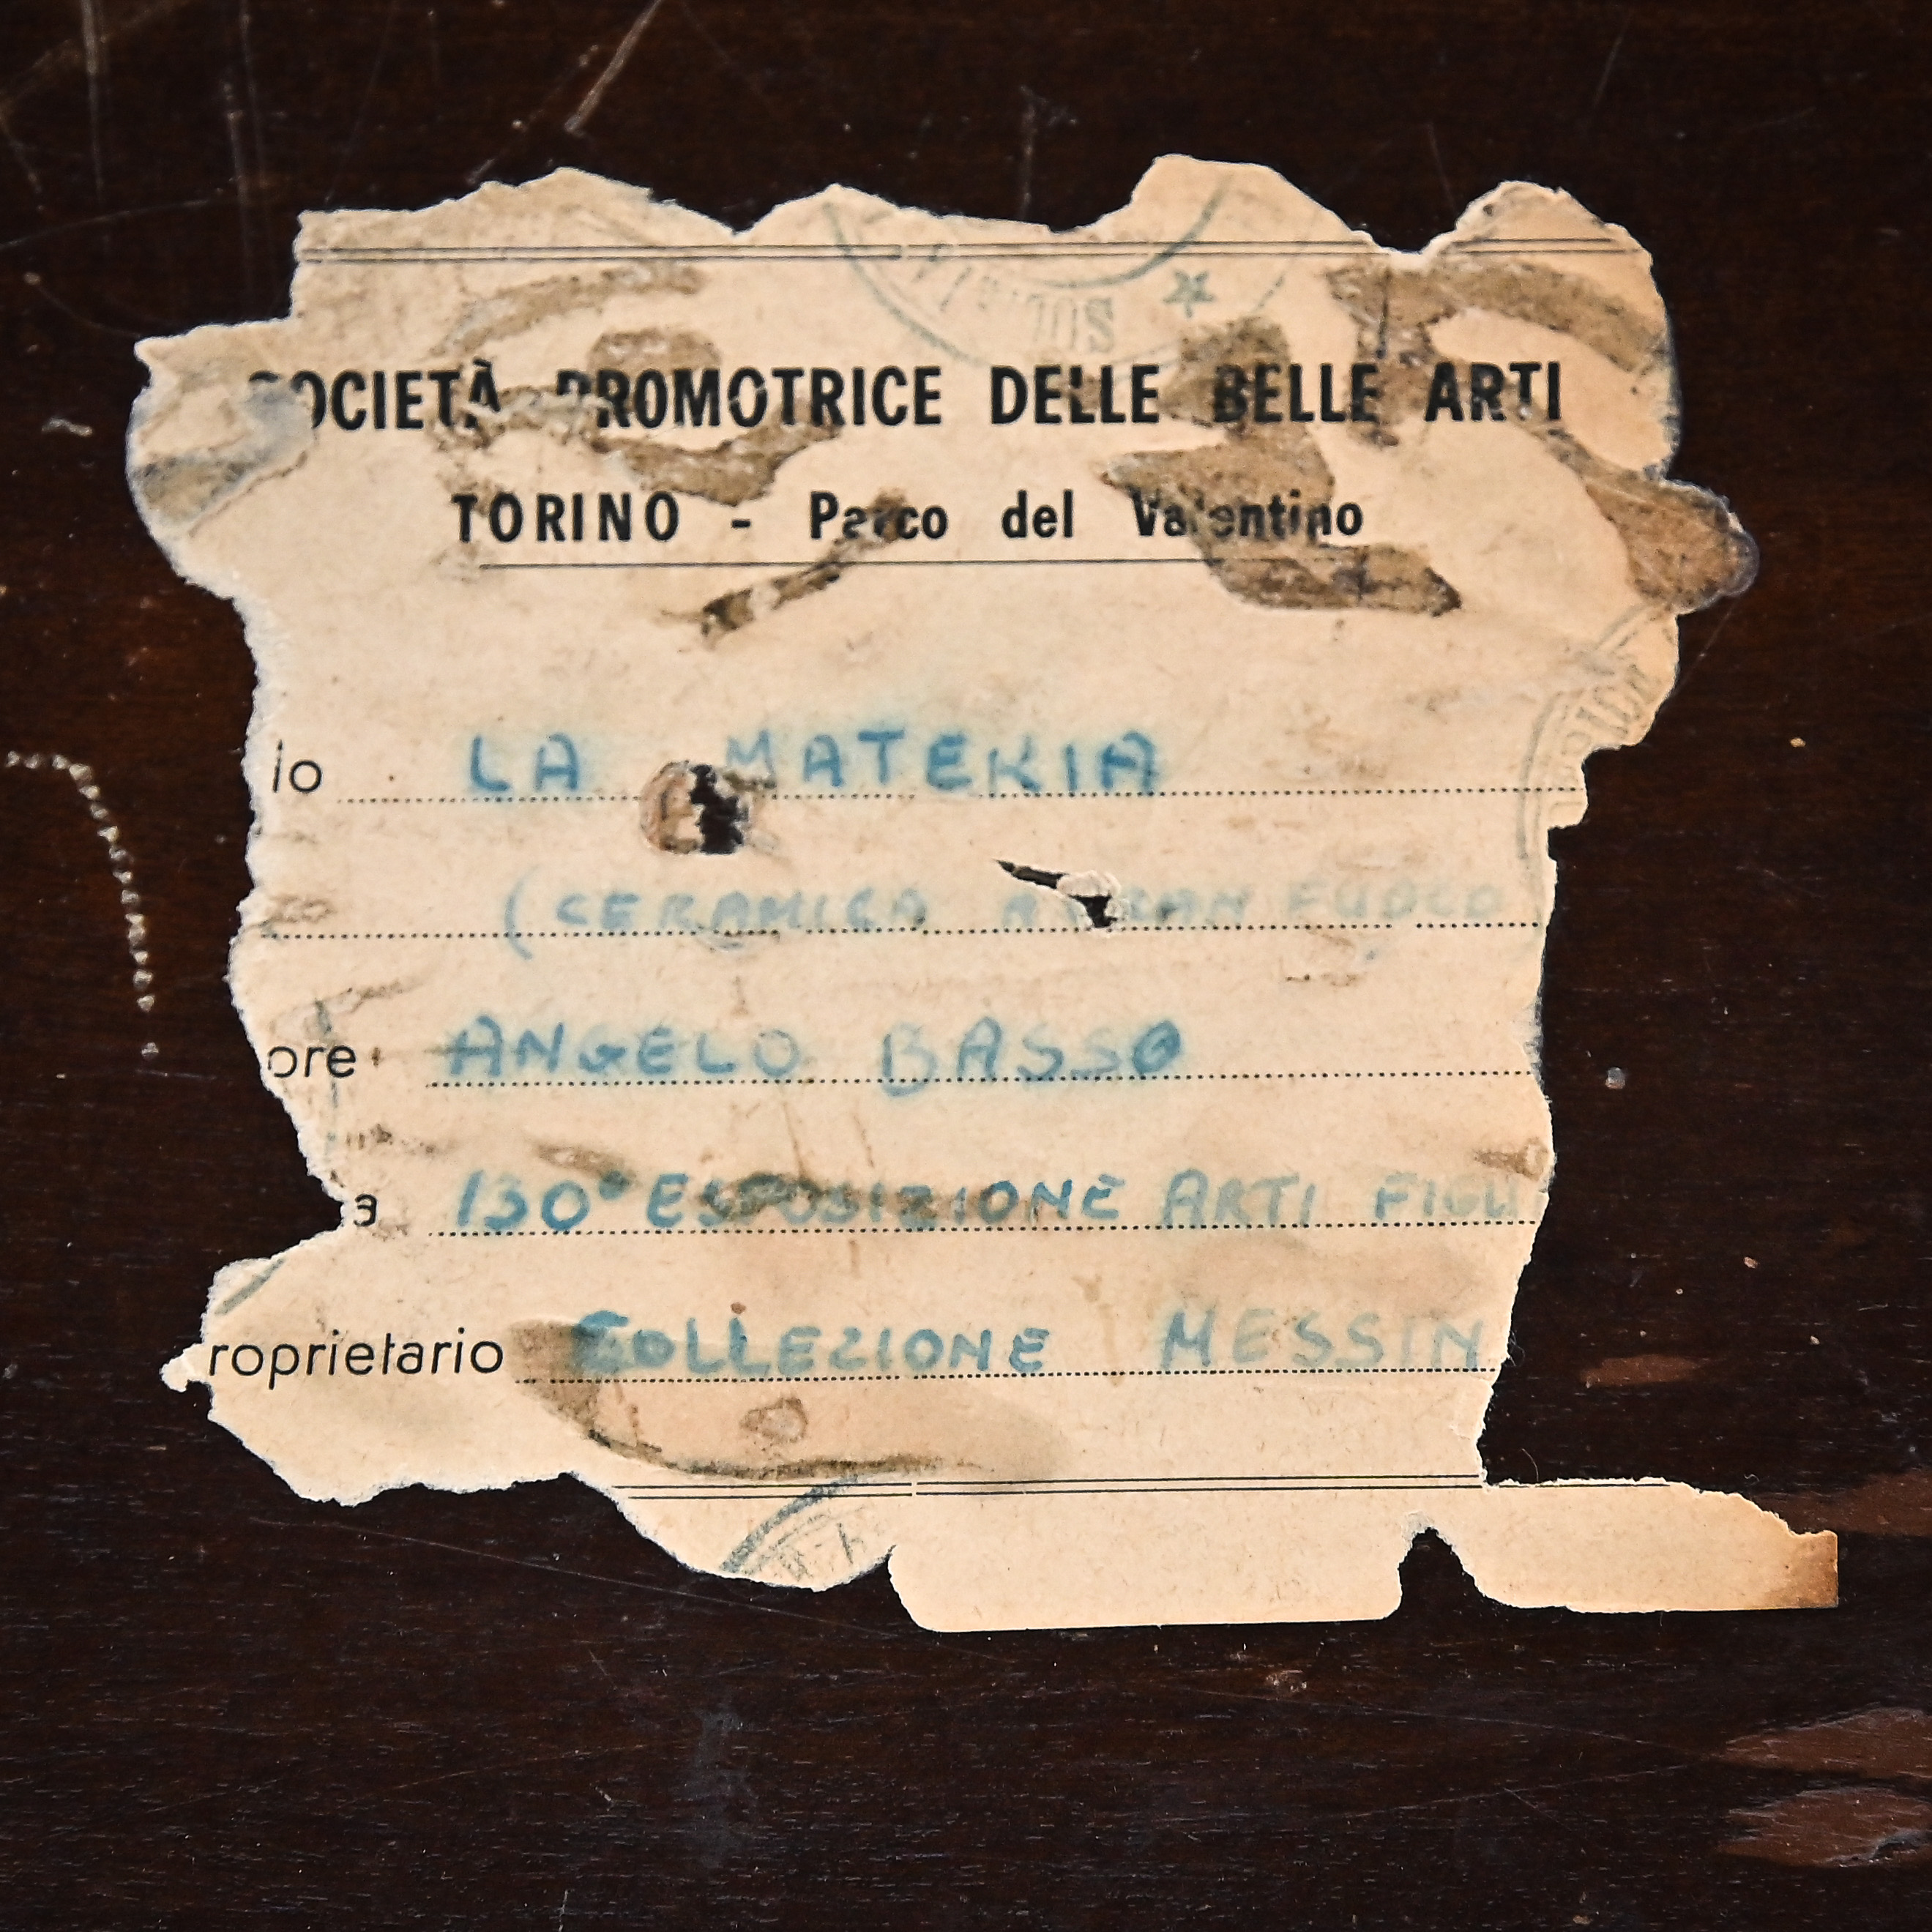 SOCIETÀ PROMOTRICE DELLE BELLE ARTI
TORINO - Parco del Valentino
lo LA MATERIA
(CERAMICA A GRAN FUOCO
ore ANGELO BASSO
a 130° ESPOSIZIONE ARTI FIGU
roprietario COLLEZIONE MESSIN